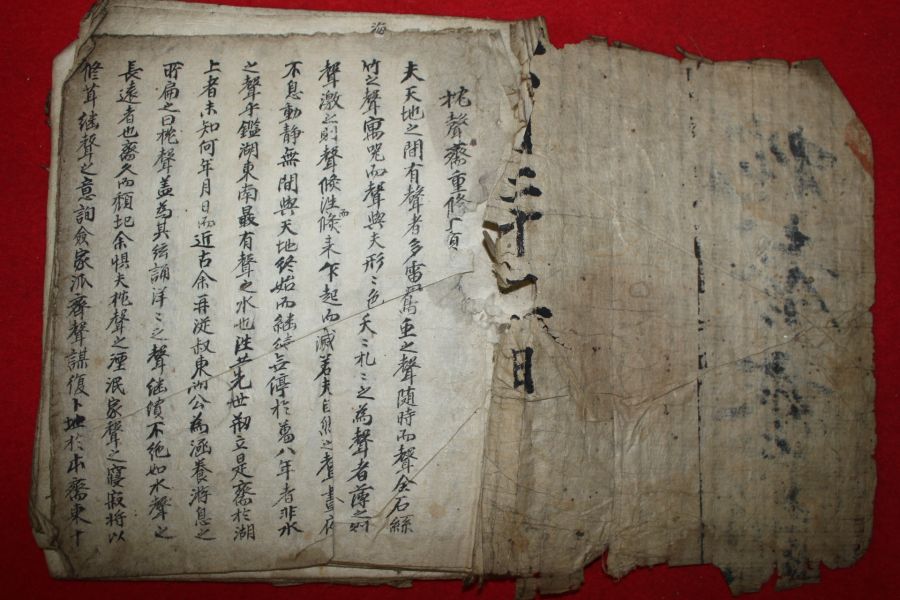 十一日
枕聲齋重修
夫天地之間有聲者多雷蟲之聲隨時而聲金石絲
竹之聲寓而聲與夫形〻色〻之為聲者薄之則
聲激之則聲倏往倏而來乍起而滅若夫自然之聲晝夜
不息動靜無間與天地終始而継續無停於萬八年者非水
之聲乎鑑湖東南最有聲之水也先世刱立是齋於湖
上者未知何年月日而近古余再從叔東湖公為涵養游息之
所扁之曰枕聲盖為其絃誦洋〻之聲継續不絶如水聲之
長遠者也齋久而頹圮余惧夫枕聲之湮泯家聲之寢寂將以
修葺継聲之意詢僉家派齊聲謀復卜地於本齋東十
海